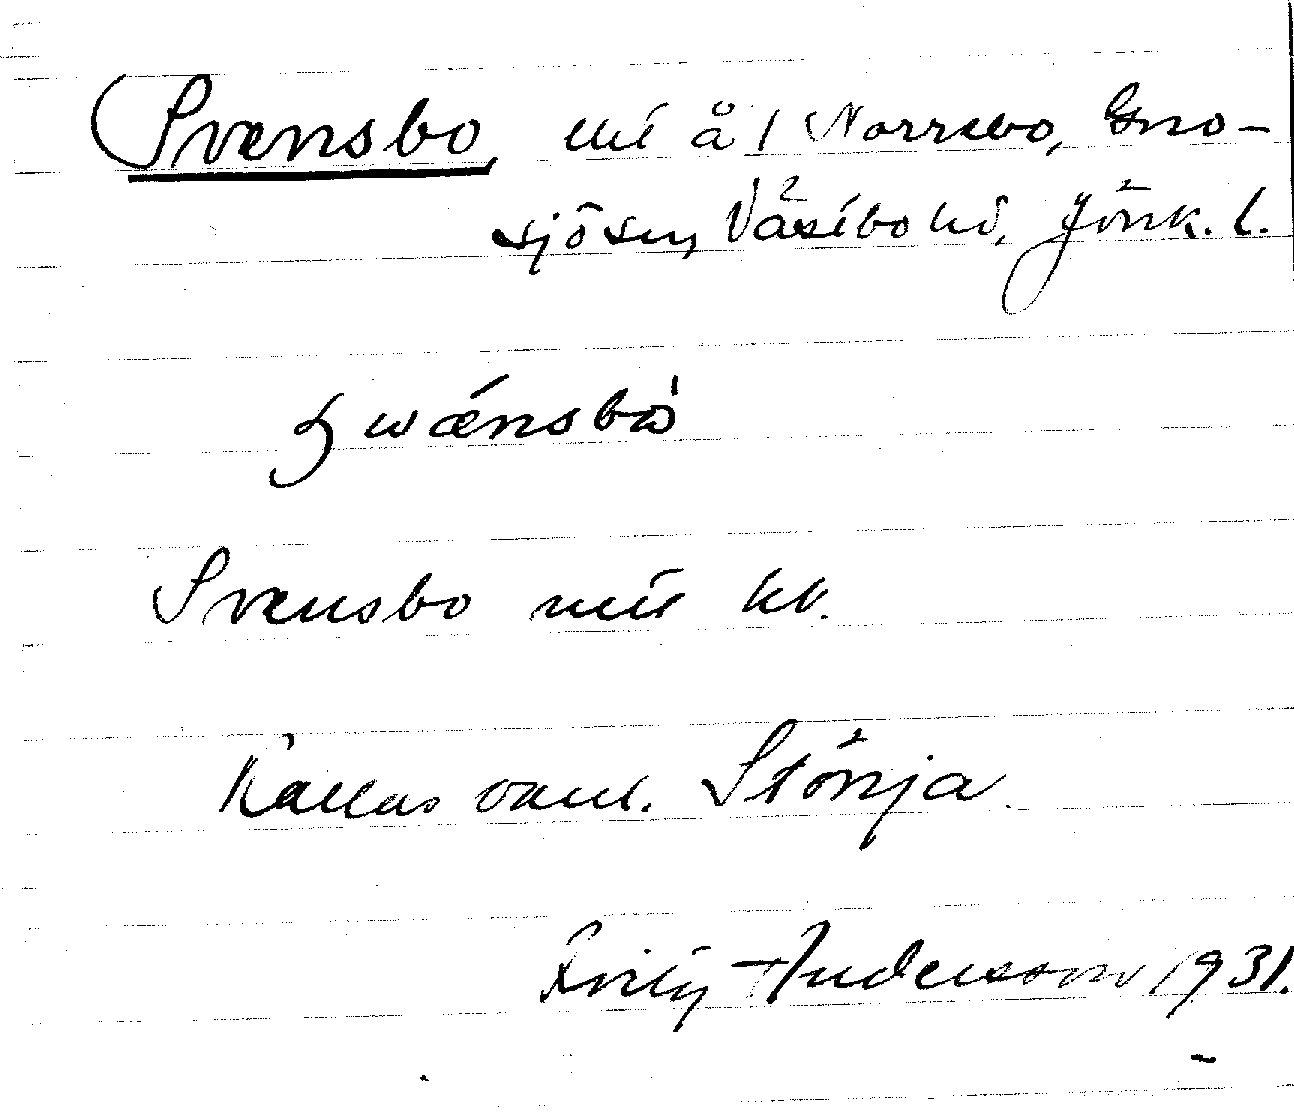 Svensbo, uté å 1 Norrebo, Gno-
sjö sn, Västbo hd, Jönk. l.
swǽnsbò
Svensbo mit kk.
Kallas vanl. Stönja.
Anderson 1931.